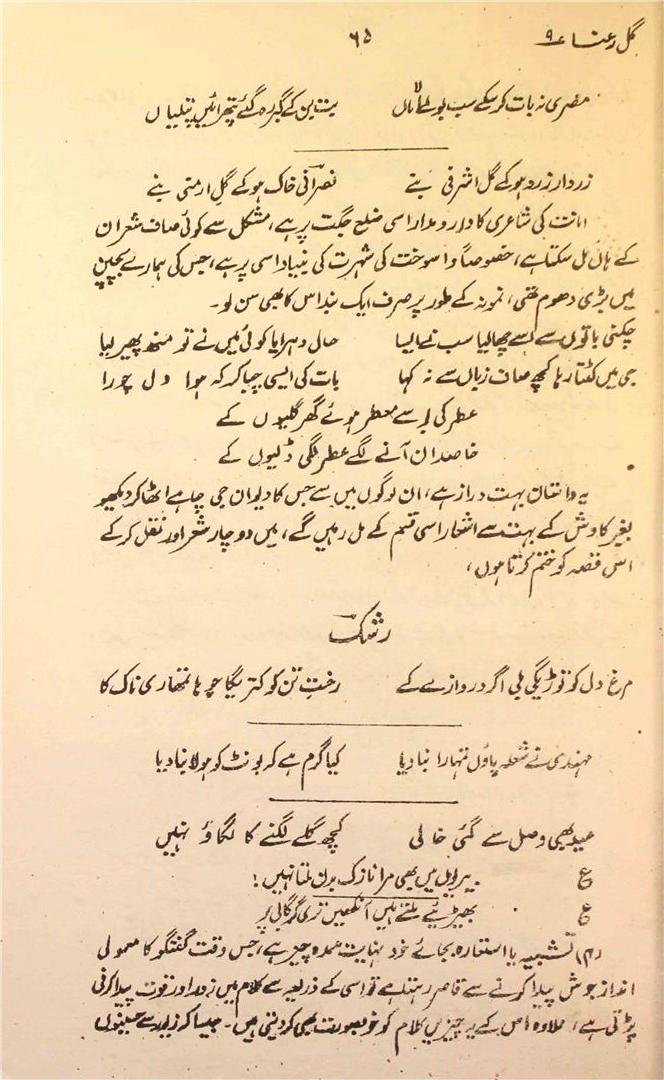 گل رعنا ۹ ۶۵
مصری نہ بات کر سکے سب بولے الاماں بت بن کے گبر رہ گئے پتھرائیں پتلیاں
زردار زرد ہو کے گل اشرفی بنے نصرانی خاک ہو کے گل ارمنی بنے
امانت کی شاعری کا دار و مدار اسی ضلع جگت پر ہے، مشکل سے کوئی صاف شعر ان
کے ہاں مل سکتا ہے، خصوصاً واسوخت کی شہرت کی بنیاد اسی پر ہے، جس کی ہمارے بچپن
میں بڑی دھوم تھی، نمونہ کے طور پر صرف ایک بند اس کا بھی سن لو۔
چکنی باتوں سے اسے چھالیا سب نے لیا حال دہرایا کوئی میں نے تو منھ پھیر لیا
جی میں کٹتا رہا کچھ صاف زباں سے نہ کہا بات کی ایسی چبا کر کہ ہوا دل چورا
عطر کی بو سے معطر ہوئے گھر گلیوں کے
خاصدان آنے لگے عطر لگی ڈلیوں کے
یہ داستان بہت دراز ہے، ان لوگوں میں سے جس کا دیوان جی چاہے اٹھا کر دیکھو
بغیر کاوش کے بہت سے اشعار اسی قسم کے مل رہیں گے، میں دو چار شعر اور نقل کر کے
اس قصہ کو ختم کرتا ہوں،
رشک
مرغ دل کو توڑیگی بلی اگر دروازے کے رخت تن کو کتریگا چوہا تمھاری ناک کا
مہندی نے شعلہ پاؤں تمہارا بنا دیا کیا گرم ہے کہ بونٹ کو ہولا بنا دیا
عید بھی وصل سے گئی خالی کچھ گلے لگنے کا لگاؤ نہیں
ع بیربل میں بھی مرا نازک بدن ملتا نہیں!
ع بھیڑیئے پلتے ہیں آنکھیں تری گرگابی پر
(م) تشبیہ یا استعارہ بجائے خود نہایت عمدہ چیز ہے، جس وقت گفتگو کا معمولی
انداز جوش پیدا کرنے سے قاصر رہتا ہے تو اسی کے ذریعہ سے کلام میں زور اور قوت پیدا کرنی
پڑتی ہے، علاوہ اس کے یہ چیزیں کلام کو خوبصورت بھی کر دیتی ہیں۔ جیسا کہ زیور سے حسینوں